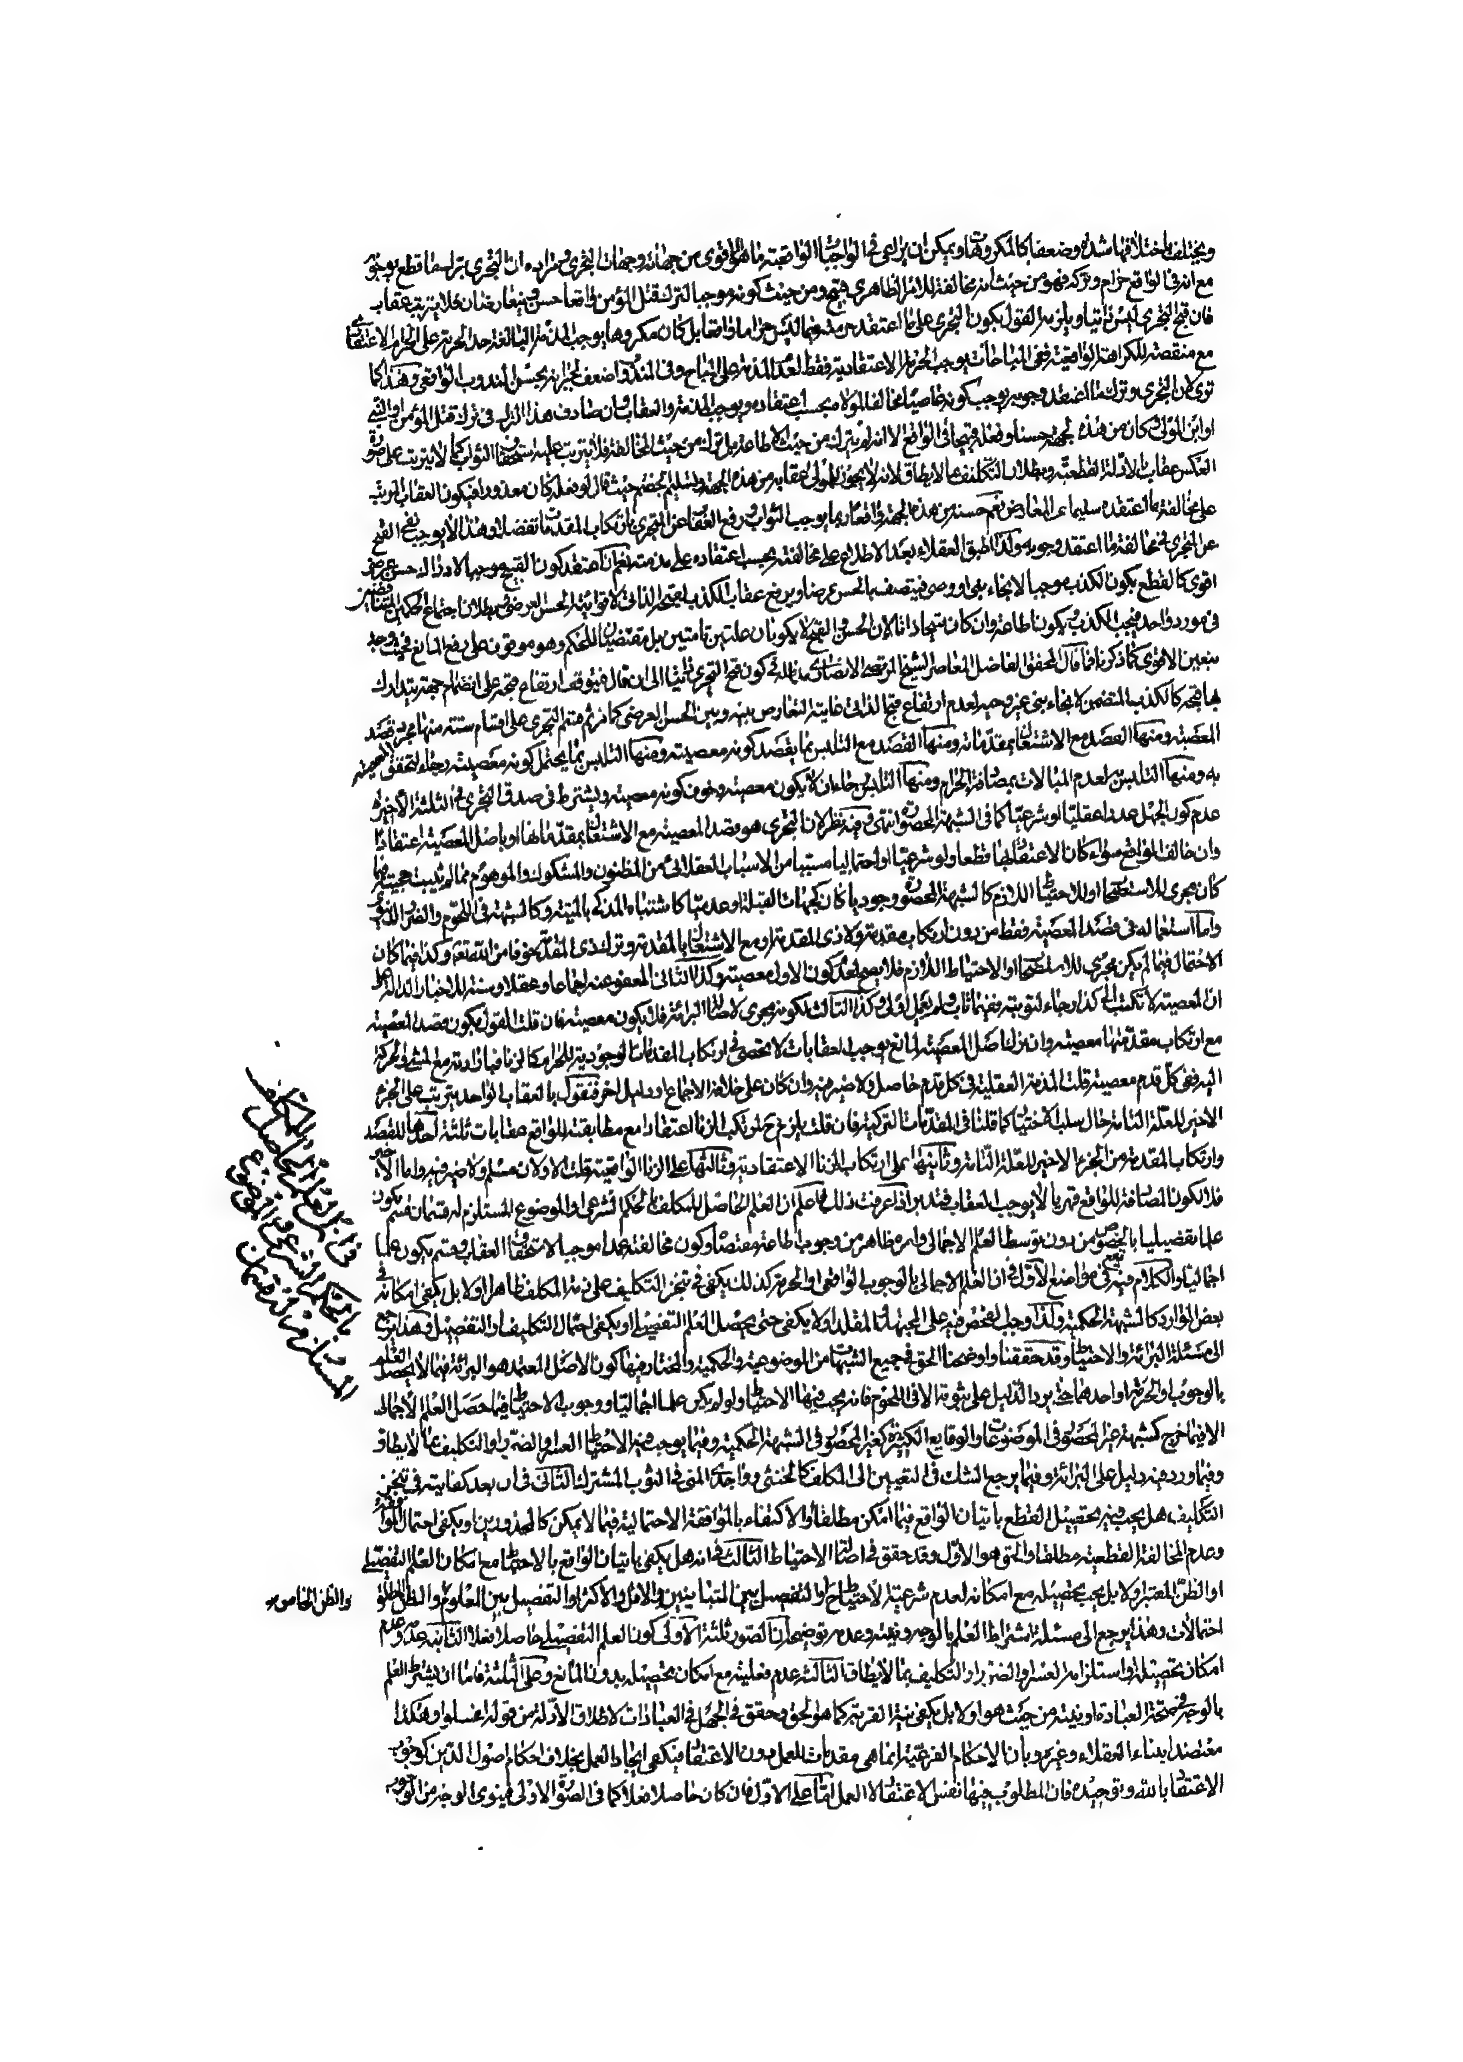 ويختلف باختلافها شدة وضعفا كالمكروهات ويمكن ان يراعى فى الواجبات الواقعية ما هو الاقوى من جهاته وجهات التجرى ومراده ان التجرى بترك ما قطع بوجوبه
مع انه فى الواقع حرام وتركه فهو من حيث انه مخالفة للامر الظاهرى قبيح ومن حيث كونه موجبا لترك قتل المؤمن واقعا حسن فيتعارضان فلا يترتب عقاب
فان قبح التجرى ليس ذاتيا ويلزمه القول بكون التجرى على ما اعتقد حرمته فيما ليس حراما واقعا بل كان مكروها يوجب المذمة البالغة حد الحرمة على الحرام الاعتقادى
مع منقصته للكراهة الواقعية ففى المباحات يوجب الحرام الاعتقادية فقط لعدم المذمة على المباح وفى المندوب اضعف لجبرانه بحسن المندوب الواقعى وهذا كما
ترى لان التجرى بترك ما اعتقد وجوبه يوجب كونه عاصيا مخالفا لمولاه بحسب اعتقاده ويوجب المذمة والعقاب وان صادف هذا الترك فى ترك قتل المؤمن او النبى
او ابن المولى وكان من هذه الجهة حسنا وفعله قبيحا فى الواقع الا انه لم يتركه من حيث الاطاعة بل تركه من حيث المخالفة فلا يترتب عليه استحقاق الثواب كما لا يترتب على صورة
العكس عقاب للادلة القطعية وبطلان التكليف بما لا يطاق لانه لا يجوز للمولى عقابه من هذه الجهة والتسليم حيث قال لو فعله كان معذورا فيكون العقاب لو ثبت
على مخالفة ما اعتقده سليما عن المعارض نعم حسنه من هذه الجهة واقعا ربما يوجب الثواب ورفع العقاب عن المتجرى بارتكاب المقدمات تفضلا وهذا لا يوجب نفى القبح
عن التجرى فى مخالفة ما اعتقد وجوبه ولذا اطبق العقلاء بعد الاطلاع على مخالفته بحسب اعتقاده على مذمته نعم ان اعتقد كون القبيح موجبا لادراك حسن عرضى
اقوى كالقطع بكون الكذب موجبا لانجاء نبى او وصى فيتصف بالحسن عرضا ويرفع عقاب الكذب لقبحه الذاتى لاقوائية الحسن العرضى وبطلان اجتماع الحكمين المتناقضين
فى مورد واحد فيجب الكذب ويكون طاعة وان كان متجاذبا لان الحسن والقبح لا يكونان علتين تامتين بل مقتضيان للحكم وهو موقوف على رفع المانع فحيث وجد
يتعين الاقوى كما ذكرنا فما قال المحقق الفاضل المعاصر الشيخ المرتضى الانصارى مد ظله فى كون قبح التجرى ذاتيا الى ان قال فيتوقف ارتفاع قبحه على انضمام جهة يتدارك
بها قبحه كالكذب المتضمن لانجاء نبى غير وجيه لعدم ارتفاع قبح الذاتى غاية التعارض بينه وبين الحسن العرضى كما مر ثم قسم التجرى على اقسام ستة منها مجرد قصد
المعصية ومنها القصد مع الاشتغال بمقدماته ومنها القصد مع التلبس بما يقصد كونه معصية ومنها التلبس بما يحتمل كونه معصية رجاء لتحقق المعصية
به ومنها التلبس به لعدم المبالات بمصادفة الحرام ومنها التلبس رجاء ان لا يكون معصية وخوف كونه معصية ويشترط فى صدق التجرى فى الثلثة الاخيرة
عدم كون الجهل عذرا عقليا او شرعيا كما فى الشبهة المحصورة انتهى وفيه نظر لان التجرى هو قصد المعصية مع الاشتغال بمقدماتها او باصل المعصية اعتقادا
وان خالف الواقع سواء كان الاعتقاد بها قطعا ولو شرعيا او احتماليا مسببا من الاسباب العقلائى من المظنون والمشكوك والموهوم مما لم يثبت حجيته فيما
كان مجرى للاستصحاب او للاحتياط اللازم كالشبهة المحصورة وجوديا كان كجهات القبلة او عدميا كاشتباه المذكى بالميتة وكالشبهة فى اللحوم والفروج
واما استعماله فى قصد المعصية فقط من دون ارتكاب مقدمة ولا ذى المقدمة او مع الاشتغال بالمقدمة وترك ذى المقدمة خوفا من الله تعالى وكذا فيما كان
الاحتمال فيما لم يكن مجرى للاستصحاب او الاحتياط اللازم فلا يصح لعدم كون الاول معصية وكذا الثانى المعفو عنه اجماعا وعقلا وسنة للاخبار الدالة على
ان المعصية لا تكتب الى كذا رجاء لتوبته ففيما تاب ولم يعمل اولى وكذا الثالث لكونه مجرى لاصالة البرائة فلا يكون معصية فان قلت القول بكون قصد المعصية
مع ارتكاب مقدمتها معصية وان ترك اصل المعصية لمانع يوجب لعقابات لا تحصى فى ارتكاب المقدمات الوجودية للحرام كالزنا فبارادته مع المشى والحركة
اليه ففى كل قدم معصية قلت المذمة العقلية فى كل قدم حاصل ولا ضير فيه وان كان على خلافه الاجماع او دليل اخر فنقول بالعقاب الواحد يترتب على الجزء
الاخير للعلة التامة حال سلب الاختيار كما قلنا فى المقدمات التركية فان قلت يلزم ح لمرتكب الزنا اعتقادا مع مطابقته للواقع عقابات ثلثة احدها للقصد
وارتكاب المقدمة من الجزء الاخير للعلة التامة وثانيها على ارتكاب الزنا الاعتقادية وثالثها على الزنا الواقعية قلت الاولان مسلم ولا ضير فيه واما الاخير
فلا لكون المصادفة للواقع قهريا لا يوجب العقاب فتدبر اذا عرفت ذلك فاعلم ان العلم الحاصل للمكلف بالحكم الشرعى او الموضوع المستلزم له قسمان قسم يكون
علما تفصيليا بالخصوص من دون توسط العلم الاجمالى وامره ظاهر من وجوب اطاعة مقتضاه وكون مخالفته عمدا موجبا لاستحقاق العقاب وقسم يكون علما
اجماليا والكلام فيه يقع فى مواضع الاول فى ان العلم الاجمالى بالوجوب الواقعى او الحرمة كذلك يكفى فى تنجز التكليف على ذمة المكلف ظاهرا اولا بل يكفى امكانه فى
بعض الموارد كالشبهة الحكمية ولذا وجب الفحص فيه على المجتهد او المقلد اولا يكفى حتى يحصل العلم التفصيلى او يكفى احتمال التكليف او التفصيل وهذا يرجع
الى مسئلة البرائة والاحتياط وقد حققنا واوضحنا الحق فى جميع الشبهات من الموضوعية والحكمية والمختار فيها كون الاصل المعتمد هو البرائة فيما لا يحصل العلم
بالوجوب او الحرمة او احدهما حتى يرد الدليل على ثبوته الا فى اللحوم فانه يجب فيها الاحتياط ولو لم يكن علما اجماليا ووجوب الاحتياط فيما حصل العلم الاجمالى
الا فيما خرج كشبهة غير المحصور فى الموضوعات والوقايع الكثيرة كغير المحصور فى الشبهة الحكمية وفيما يوجب فيه الاحتياط العسر او الضرر او التكليف بما لا يطاق
وفيما ورد فيه دليل على البرائة وفيما يرجع الشك فى التعيين الى المكلف كالخنثى وواجدى المنى فى الثوب المشترك الثانى فى ان بعد كفايته فى تنجز
التكليف هل يجب فيه تحصيل القطع باتيان الواقع فيما امكن مطلقا او الاكتفاء بالموافقة الاحتمالية فيما لا يمكن كالمحذورين او يكفى احتمال الموافقة
وعدم المخالفة القطعية مطلقا والحق هو الاول وقد حقق فى اصالة الاحتياط الثالث فى انه هل يكفى باتيان الواقع بالاحتياط مع امكان العلم التفصيلى
او الظن المعتبر اولا بل يجب تحصيله مع امكانه لعدم شرعية الاحتياط ح او التفصيل بين المتباينين والاقل والاكثر او التفصيل بين المعلوم والظن المطلق
والظن الخاص
احتمالات وهذا يرجع الى مسئلة اشتراط العلم بالوجه ونيته وعدمه توضيحه ان الصور ثلثة الاولى كون العلم التفصيلى حاصلا فعلا الثانية عدمه وعدم
امكان تحصيله واستلزامه العسر او الضرر او التكليف بما لا يطاق الثالثة عدم فعليته مع امكان تحصيله بدون المانع وعلى الثلثة فاما ان يشترط العلم
بالوجه فى صحة العبادة او نيته من حيث هو اولا بل يكفى نية القربة كما هو الحق وحقق فى الجهل فى العبادات لاطلاق الادلة من قوله اغسلوا وهكذا
معتضدا ببناء العقلاء وغيره وبان الاحكام الفرعية انما هى مقدمات للعمل دون الاعتقاد فيكفى ايجاد العمل بخلاف احكام اصول الدين كوجوب
الاعتقاد بالله وتوحيده فان المطلوب فيها نفس الاعتقاد لا العمل اما على الاول فان كان حاصلا فعلا كما فى الصورة الاولى فينوى الوجه من الوجوب
فى ان العلم الحاصل للمكلف
بالحكم الشرعى او الموضوع
المستلزم له قسمان